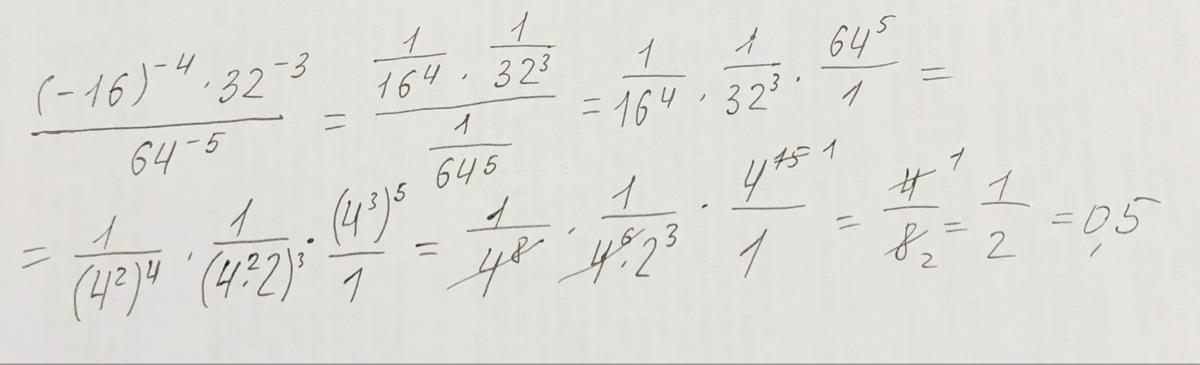 (-16)^-4 · 32^-3 / 64^-5 = (1/16^4 · 1/32^3) / (1/64^5) = 1/16^4 · 1/32^3 · 64^5/1 =
= 1/(4^2)^4 · 1/(4^2·2)^3 · (4^3)^5/1 = 1/4^8 · 1/4^6·2^3 · 4^15 1/1 = 4 1/8 2 = 1/2 = 0,5